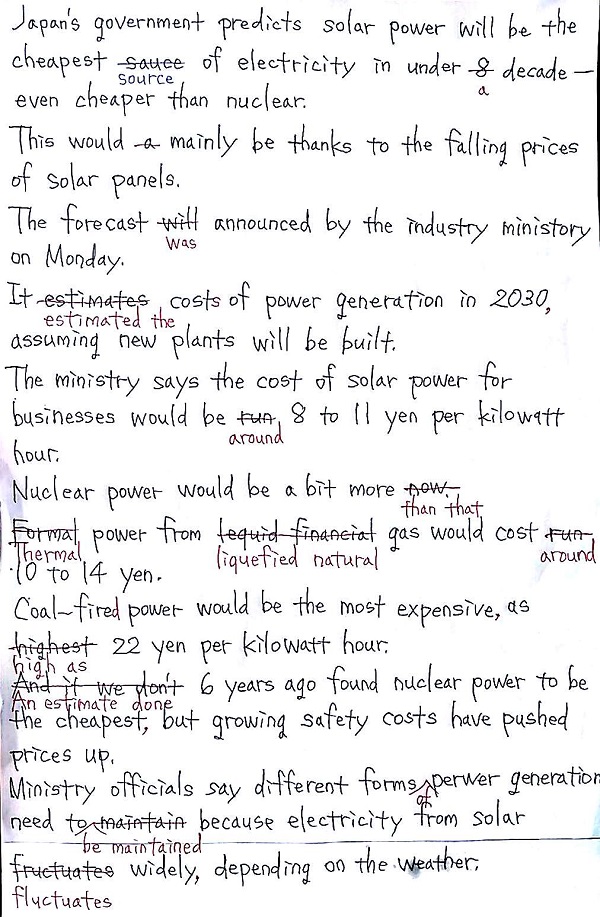 Japan's government predicts solar power will be the
cheapest sauce of electricity in under 8 decade —
source
a
even cheaper than nuclear.
This would a mainly be thanks to the falling prices
of solar panels.
The forecast will announced by the industry ministory
was
on Monday.
It estimates costs of power generation in 2030,
estimated the
assuming new plants will be built.
The ministry says the cost of solar power for
businesses would be run 8 to 11 yen per kilowatt
around
hour.
Nuclear power would be a bit more now.
than that
Formal power from lequid financial gas would cost run
Thermal liquefied natural around
10 to 14 yen.
Coal-fired power would be the most expensive, as
highest 22 yen per kilowatt hour.
high as
And if we don't 6 years ago found nuclear power to be
An estimate done
the cheapest, but growing safety costs have pushed
prices up.
Ministry officials say different forms perwer generation
of
need to maintain because electricity from solar
be maintained
fructuates widely, depending on the weather.
fluctuates